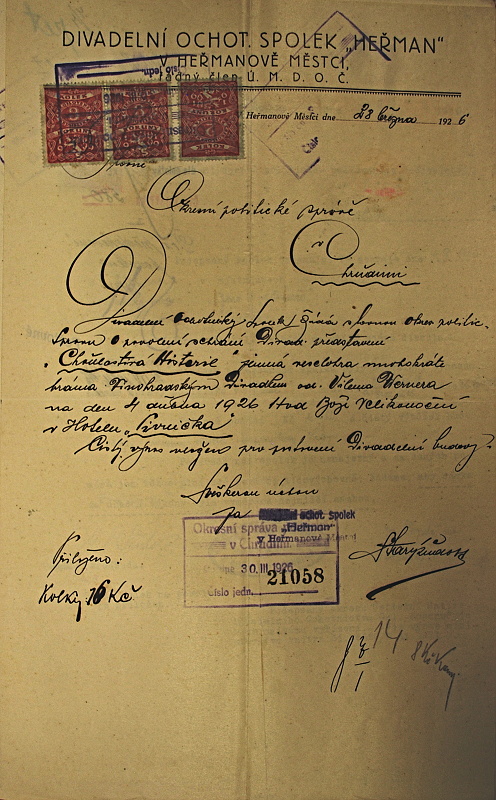 DIVADELNÍ OCHOT. SPOLEK „HEŘMAN“
V HEŘMANOVĚ MĚSTCI,
řádný člen Ú. M. D. O. Č.
Heřmanův Městci dne 28 března 1926
Slavné
Okresní politické správě
v
Chrudimi
Divadelní Ochotnický Spolek žádá slavnou okres. politic.
Správu o povolení sehrání Divad. představení
„Choulostivá Historie“ jemná veselohra mnohokráte
hrána Vinohradským Divadlem od. Viléma Wernera
na den 4 dubna 1926 Hod Boží Velikonoční
v Hotelu „Sivnička“
Čistý výnos věnován pro Divadelní budovy.
S veškerou úctou
za ochot. spolek
„Heřman“
v Heřmanově Městci
Okresní správa
v Chrudimi
30.III.1926
Číslo jedn. 21058
Přiloženo:
Kolky 16 Kč
14.